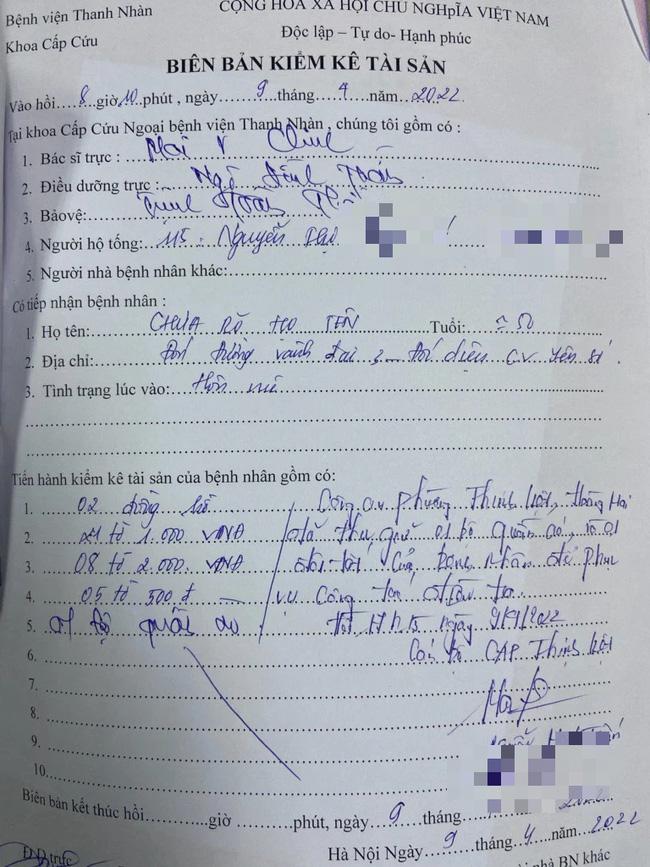 Bệnh viện Thanh Nhàn
CỘNG HÒA XÃ HỘI CHỦ NGHĨA VIỆT NAM
Khoa Cấp Cứu
Độc lập – Tự do- Hạnh phúc
BIÊN BẢN KIỂM KÊ TÀI SẢN
Vào hồi.....8..giờ10.phút , ngày.......9.......tháng....4.....năm..2022
Tại khoa Cấp Cứu Ngoại bệnh viện Thanh Nhàn , chúng tôi gồm có :
1. Bác sĩ trực :
2. Điều dưỡng trực : Ngô Đình
3. Bảo vệ:
4. Người hộ tống: 115. Nguyễn
5. Người nhà bệnh nhân khác:
Có tiếp nhận bệnh nhân :
1. Họ tên: CHƯA RÕ HỌ TÊN Tuổi: ≈ 50
2. Địa chỉ: đường vành đai 3 – đối diện C.V Yên Sở
3. Tình trạng lúc vào: Hôn mê
Tiến hành kiểm kê tài sản của bệnh nhân gồm có:
1. 02 đồng hồ Công an phường Thịnh Liệt, Hoàng Mai
2. 21 tờ 1.000 VNĐ đã thu giữ 01 bộ quần áo, và 01
3. 08 tờ 2.000 VNĐ của bệnh nhân để phục
4. 05 tờ 500 đ v.v công tác điều tra
5. 01 bộ quần áo ngày 9/4/2022
6. Cán bộ CAP. Thịnh Liệt
7.
8.
9.
10.
Biên bản kết thúc hồi..............giờ ..............phút, ngày.....9.......tháng
Hà Nội Ngày....9....tháng...4....năm...2022